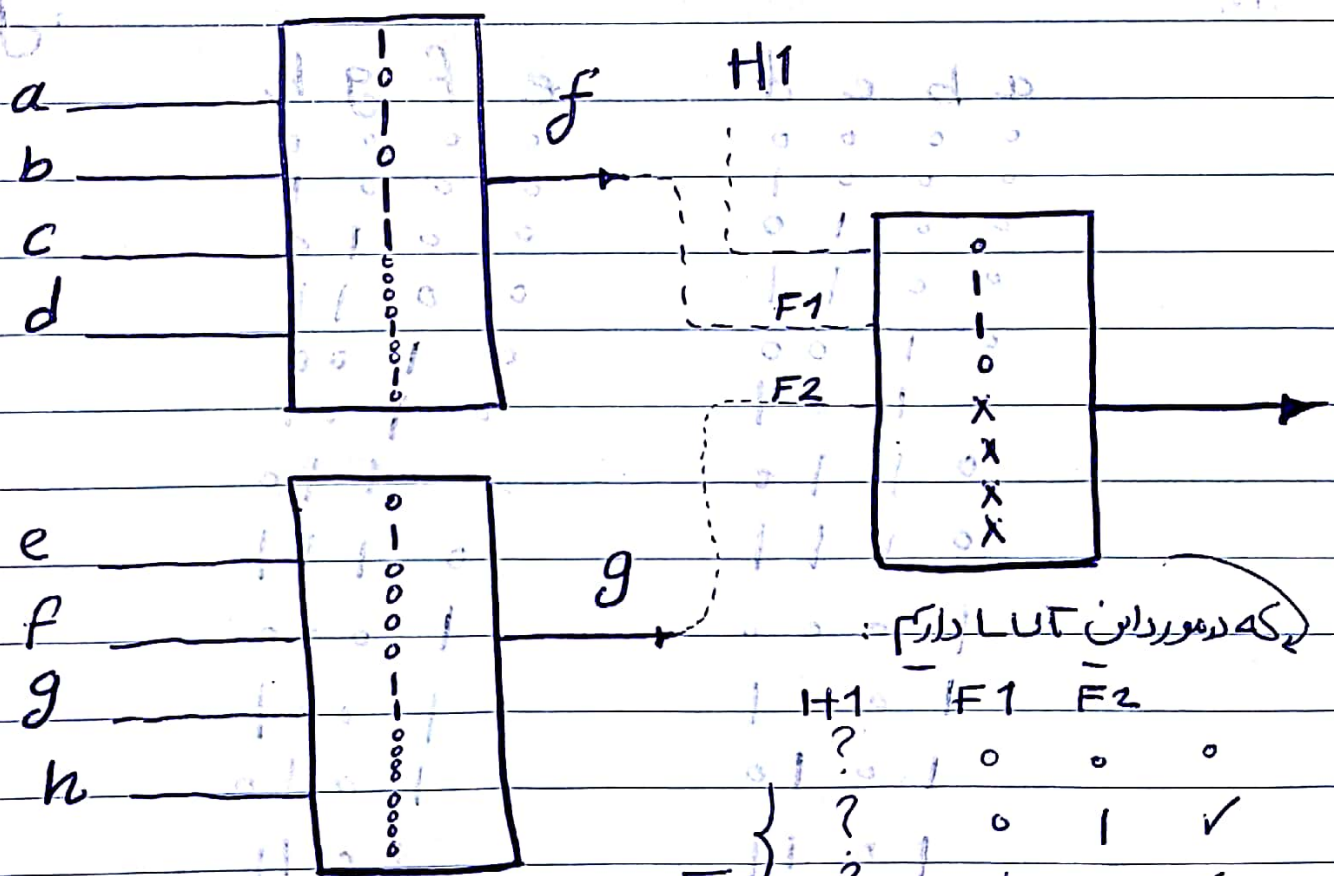 H1
a
b
c
d
1
0
1
0
1
1
0
0
0
0
1
0
0
1
0
f
F1
F2
0
1
1
0
X
X
X
X
e
f
g
h
0
1
0
0
0
0
1
1
0
0
0
0
0
0
0
0
g
که در مورد این LUT داریم :
H1 F1 F2
? 0 0 0
? 0 1 ✓
?